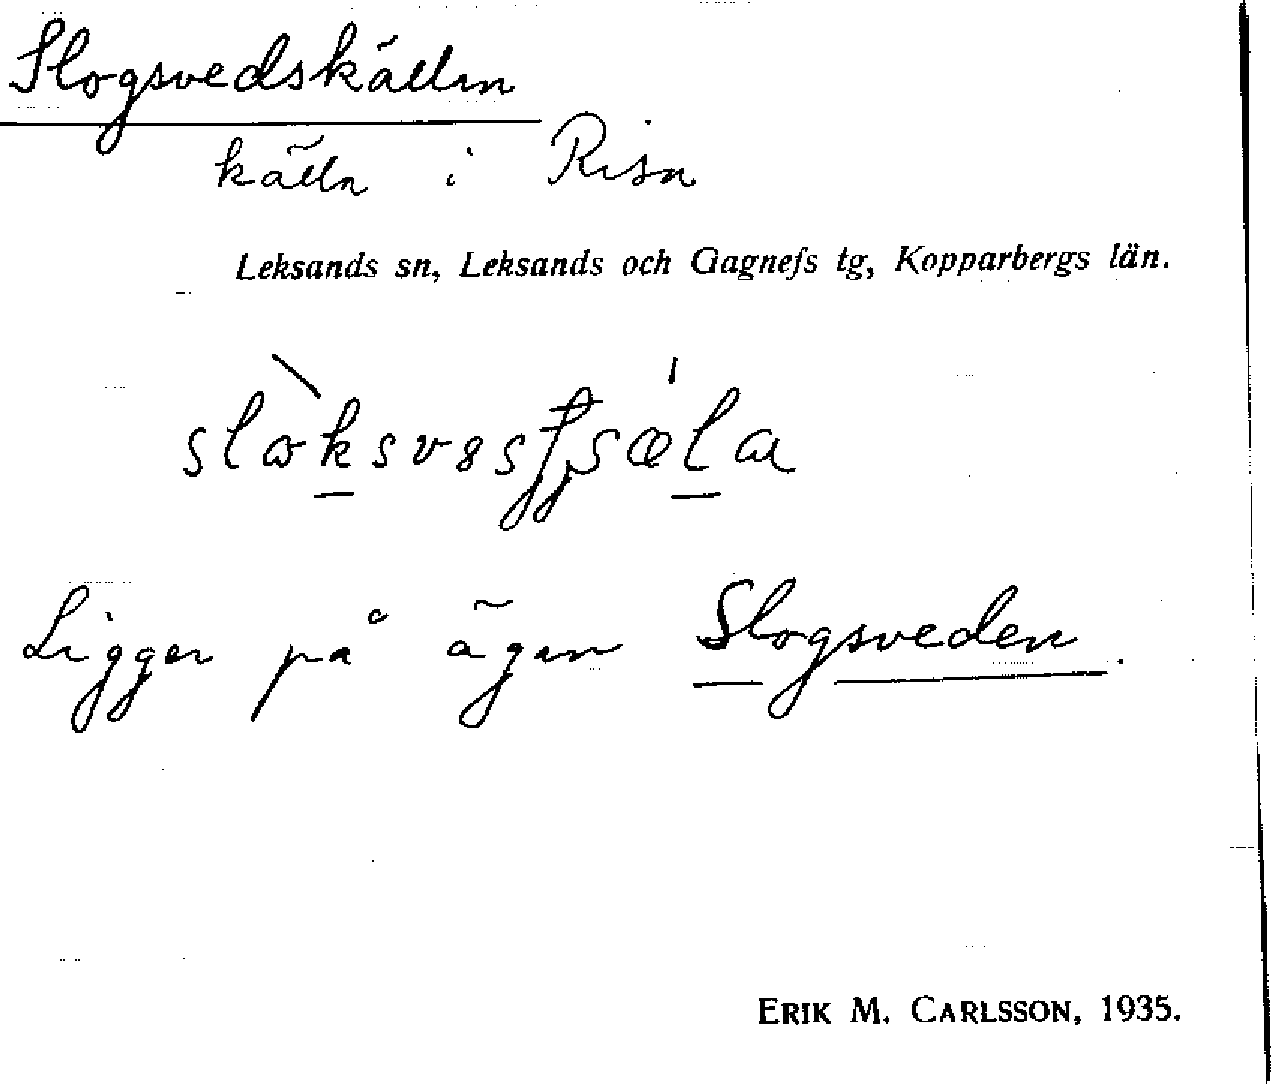 Slogsvedskällan
källa i Risa
Leksands sn, Leksands och Gagnefs tg, Kopparbergs län.
Ligger på ägan Slogsveden.
ERIK M. CARLSSON, 1935.